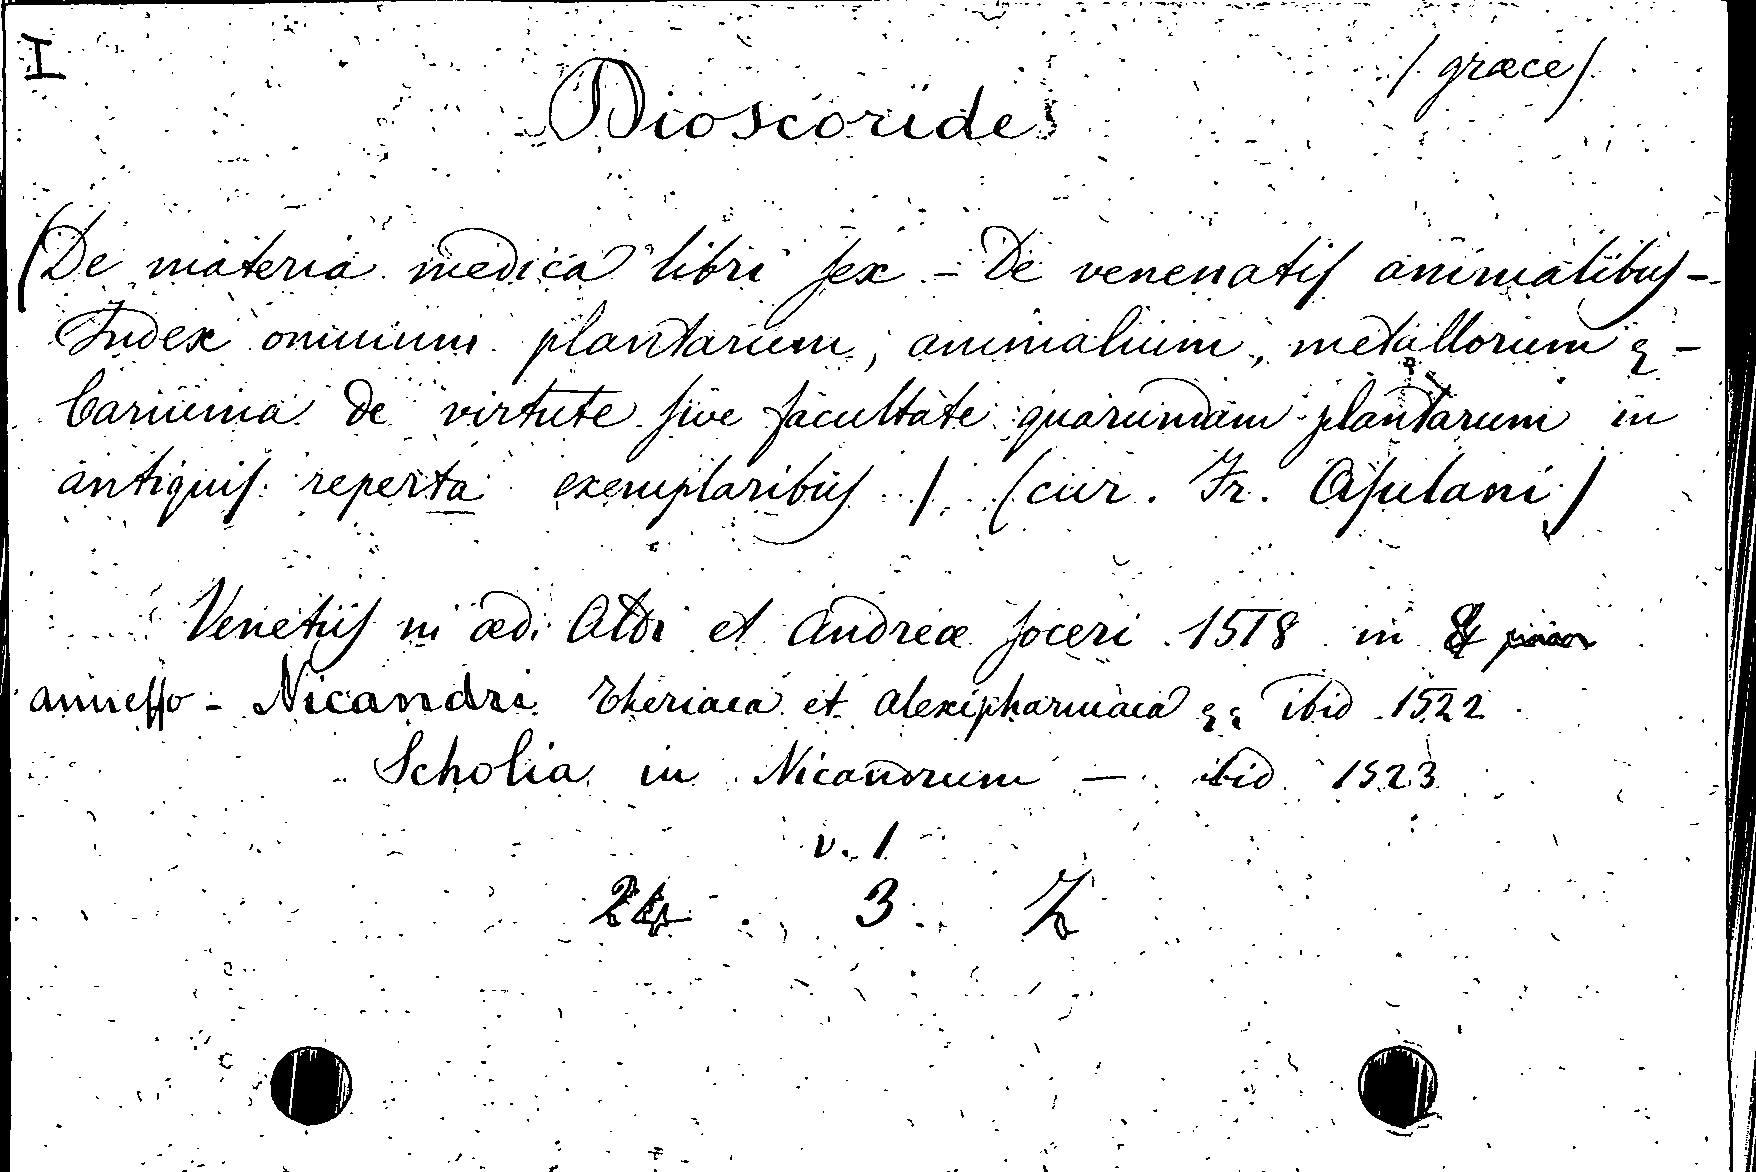 I
/ græce /
Dioscorides
(De materia medica libri sex - De venenatis animalibus -
Index omnium plantarum, animalium, metallorum &-
Carmina de virtute sive facultate quarumdam plantarum in
antiquis reperta exemplaribus / (cur. Fr. Asulani)
Venetiis in æd. Aldi et Andreæ soceri 1518 in
annesso - Nicandri Theriaca et Alexipharmaca ibid 1522
Scholia in Nicandrum — ibid 1523
v. 1
24 3 Z